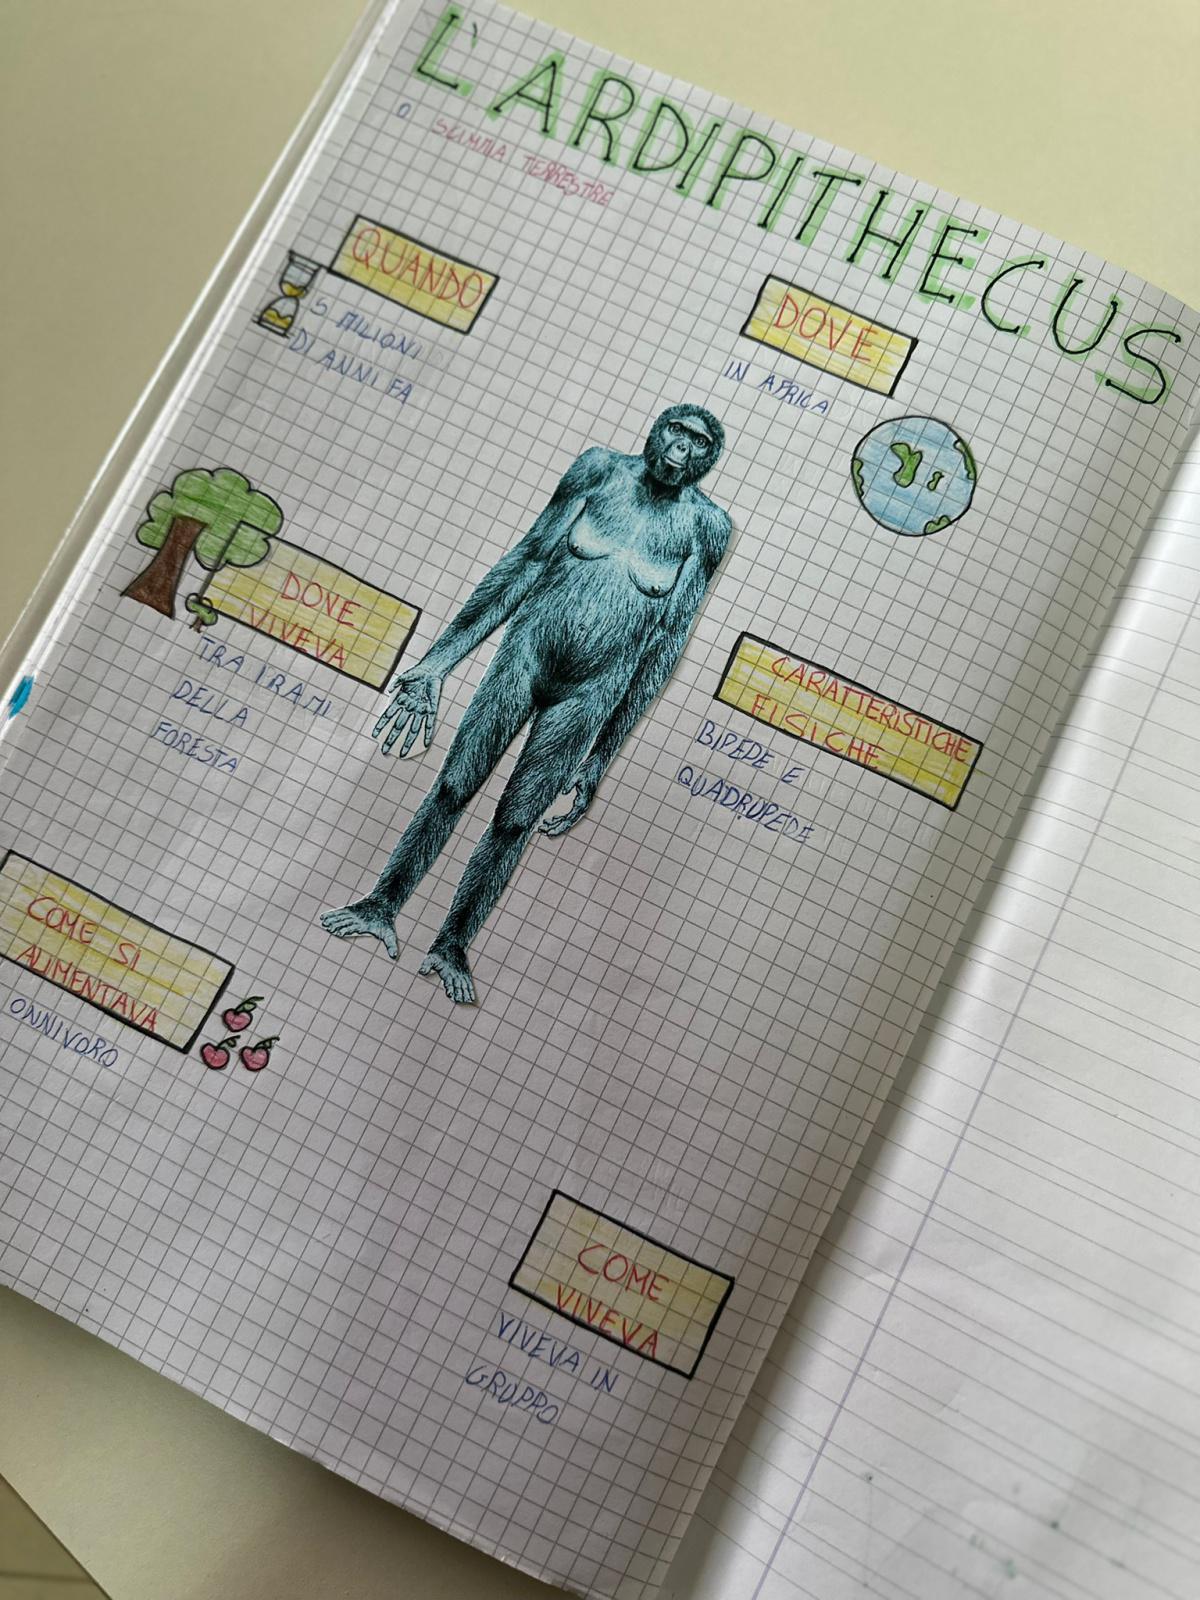 L'ARDIPITHECUS
O SCIMMIA TERRESTRE
QUANDO
5 MILIONI
DI ANNI FA
DOVE
IN AFRICA
DOVE
VIVEVA
TRA I RAMI
DELLA
FORESTA
CARATTERISTICHE
FISICHE
BIPEDE E
QUADRUPEDE
COME SI
ALIMENTAVA
ONNIVORO
COME
VIVEVA
VIVEVA IN
GRUPPO